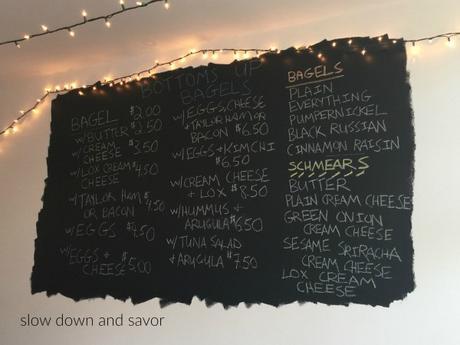 BOTTOMS UP
BAGELS
BAGEL $2.00
W/BUTTER $2.50
W/CREAM
CHEESE $3.50
W/LOX CREAM $4.50
CHEESE
W/TAYLOR HAM $4.50
OR BACON
W/EGGS $4.50
W/EGGS +
CHEESE $5.00
W/EGGS, CHEESE
+ TAYLOR HAM OR
BACON $6.50
W/EGGS + KIMCHI
$6.50
W/CREAM CHEESE
+ LOX $8.50
W/HUMMUS +
ARUGULA $6.50
W/TUNA SALAD
+ ARUGULA $7.50
BAGELS
PLAIN
EVERYTHING
PUMPERNICKEL
BLACK RUSSIAN
CINNAMON RAISIN
SCHMEARS
BUTTER
PLAIN CREAM CHEESE
GREEN ONION
CREAM CHEESE
SESAME SRIRACHA
CREAM CHEESE
LOX CREAM
CHEESE
slow down and savor